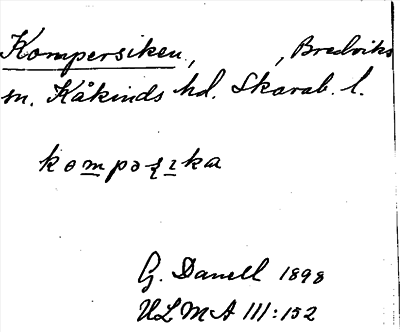 Kompersiken, , Bredviks
m. Kåkinds hd. Skarab. l.
kompəʂıka
G. Danell 1898
ULMA III:152